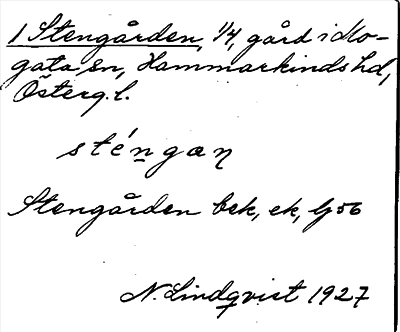 1 Stengården, 1/4, gård i Mo-
gata sn, Hammarkinds hd,
Österg. l.
sténgaṉ
Stengården bek, ek, Gj 56
N. Lindqvist 1927